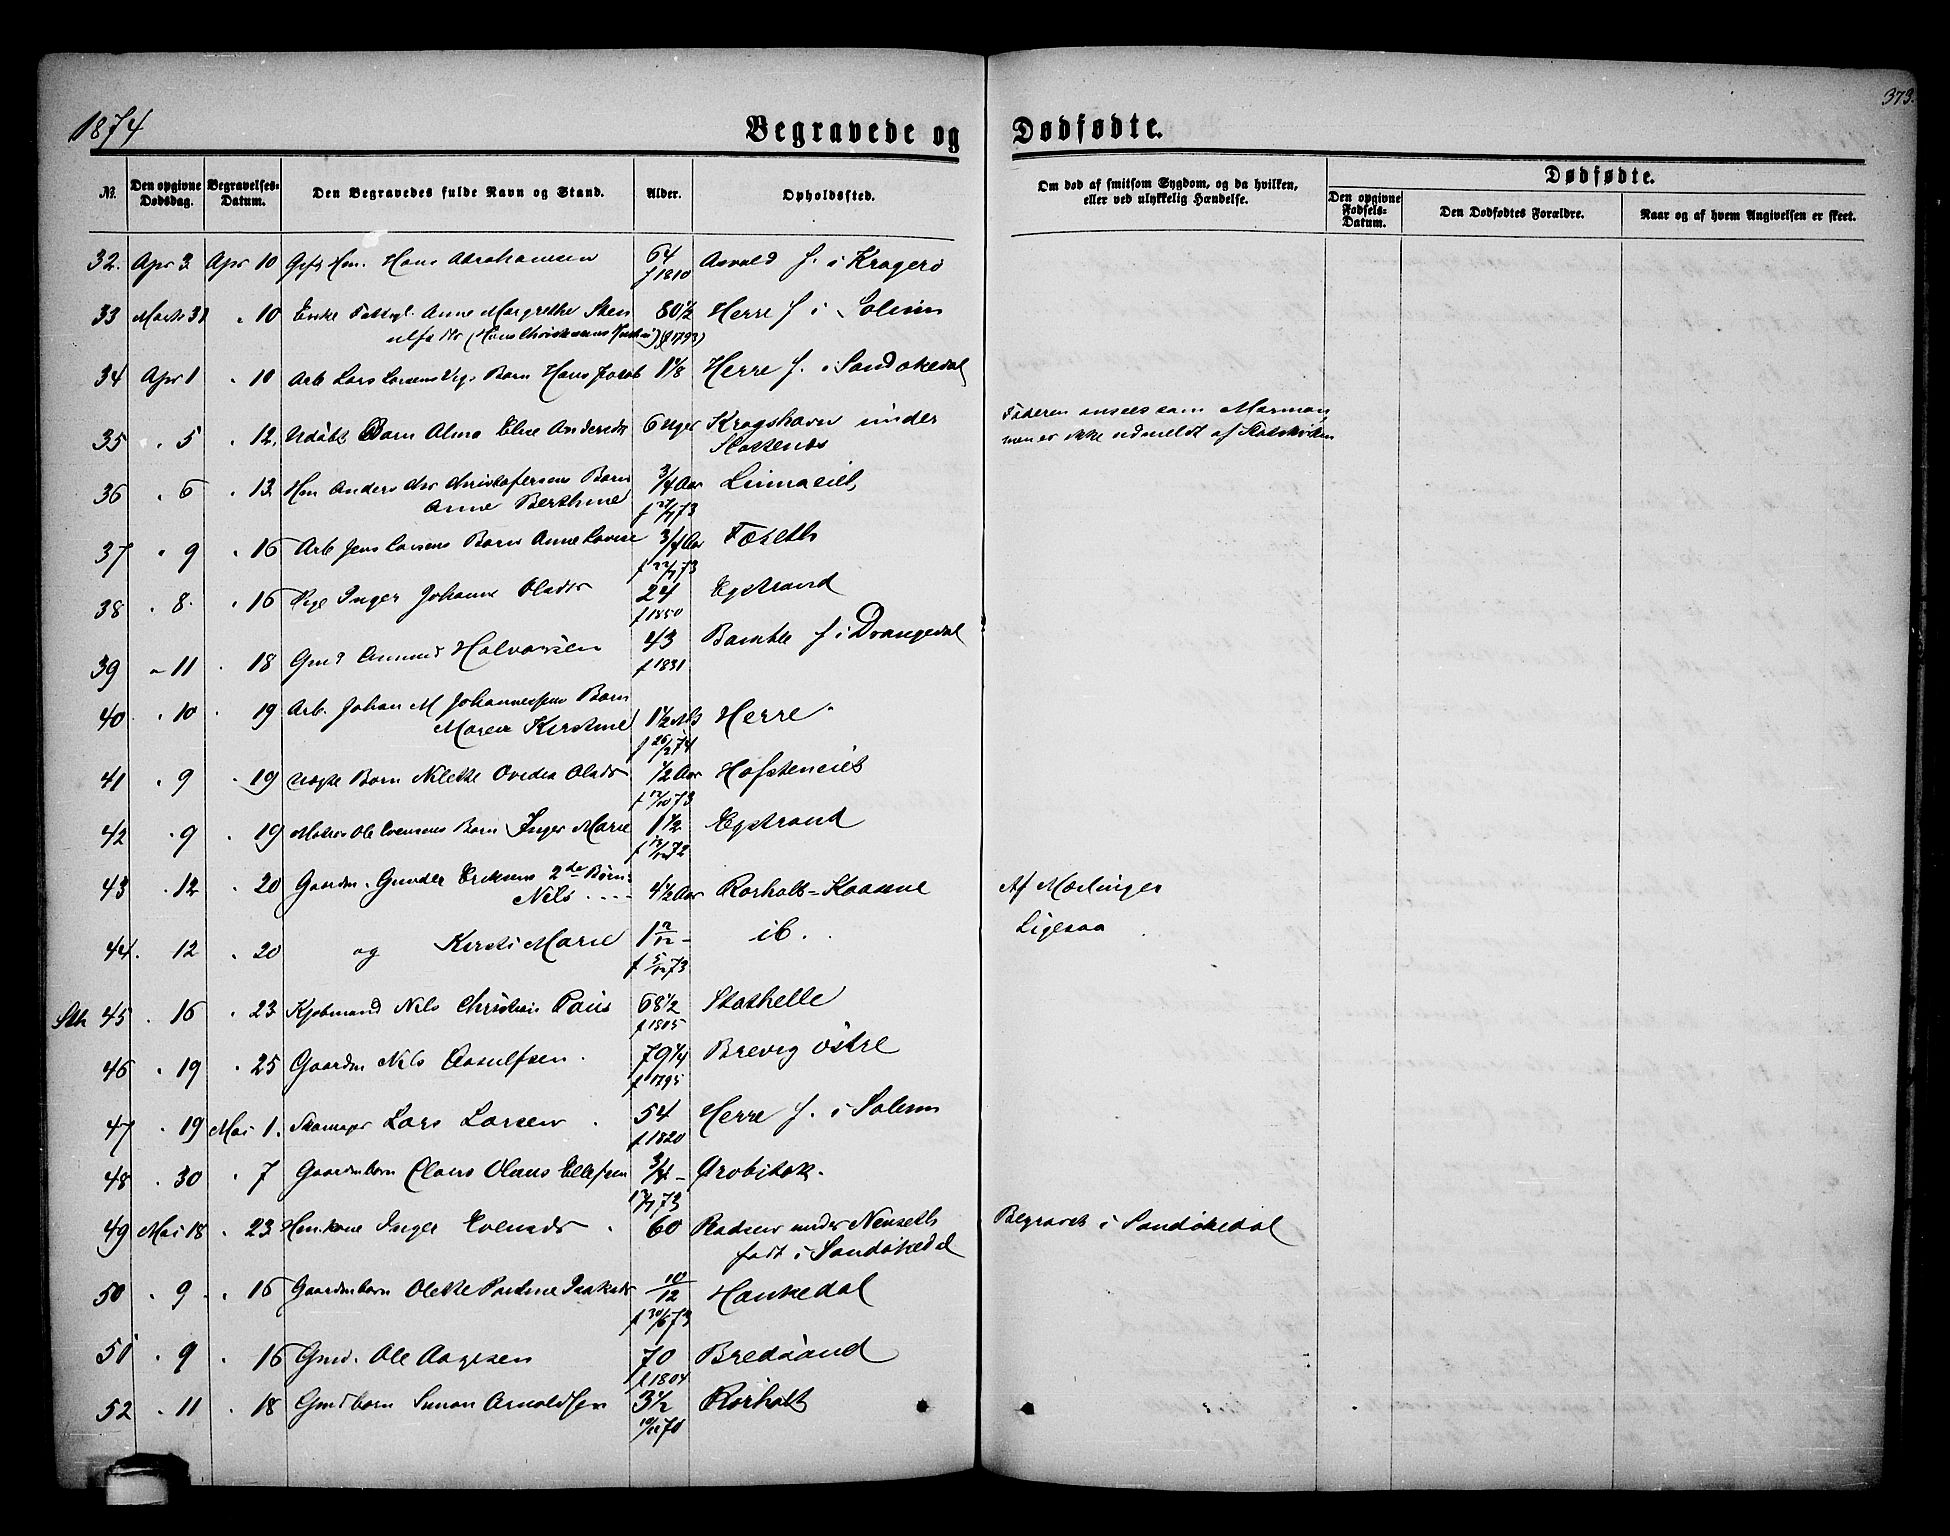 373.
1874
Begravede og Dødfødte.
No. Den opgivne Dødsdag. Begravelses-Datum. Den Begravedes fulde Navn og Stand. Alder. Opholdssted. Om død af smitsom Sygdom, og da hvilken, eller ved ulykkelig Hændelse. Dødfødte.
Den opgivne Fødsels-Datum. Den Dødfødtes Forældre. Naar og af hvem Angivelsen er skeet.
32. Apr 3. Apr 10 Hans Abrahamsen 64 Asvald f. i Kragerø
f 1810
33 Marts 31 " 10 Enke Anne Margrethe Sten 80½ Herre f i Solum
ulfsdtr (f 1793)
34 Apr 1 " 10 Arb Lars Larsens Børn Hans Jacob 1 1/8 Herre f. i Sandøkedal
35 " 5 " 12. Udøbt Barn Alma Elise Andersdr 6 Uger Kragshavn under Faderen ansees som Mormon
Stathelle men er ikke udmeldt af Statskirken
36 " 6 " 13 Hm Anders Christofersens Barn 3/4 Aar Linnaeiet
Anne Berthine f 27/7 73
37 " 9 " 16 Arb Jens Larsens Barn Anne Lovise 3/4 Aar Fæseth
f 22/7 73
38 " 8. " 16 Pige Inger Johanne Olsdtr 24 Egstrand
f 1850
39 " 11 " 18 Gmd Amund Halvorsen 43 Bamble f i Drangedal
f 1831
40 " 10 " 19 Arb. Johan M Johannessens Barn
Maren Kirstine 1½ Md Herre
f 26/2 74
41 " 9 " 19 Uægte Barn Nilekke Ovedia Olsdr ½ Aar Hafsteneiet
f 12/10 73
42 " 9 " 19 Matros Ole Evensens Barn Inger Marie 1½ Egstrand
f 12/10 72
43 " 12 " 20 Gaardm. Gunder Eriksens 2de Børn:
Nils 4½ Aar Rorholt-Kaasene Af Mæslinger
44. " 12 " 20 og Kirsti Marie 1 2/12 - ib. Ligesaa
Sth 45 " 16 " 23 Kjøbmand Nils Christian Paus 68½ Stathelle
f 1805
46 " 19 " 25 Gaardm Nils Aasulfsen 79¼ Brevig østre
f 1795
47 " 19 Mai 1. Lars Larsen 54 Herre f. i Solum
f 1820
48 " 30 " 7 Gaardmbarn Claus Olaus Ellefsen 3/4 - Grobstok
73
49 Mai 18 " 23 Hmkone Inger Evensdr 60 Pladsen under Nenseth Begravet i Sandøkedal
født i Sandøkedal
50 " 9 " 16 Gaardmbarn Olekke Pauline Isaksdr 10/12 Hankedal
f 30/6 73
51 " 9 " 16 Gmd. Ole Aagesen 70 Bredsand
f 1804
52 " 11 " 18 Gmdbarn Simon Arnoldsen 3½ Rorholt
70